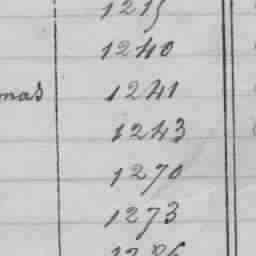 1215
1240
mas 1241
1243
1270
1273
1286